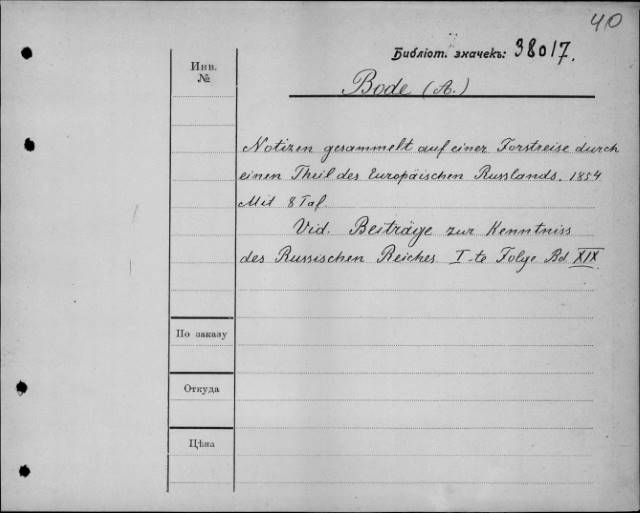 40
Библiот. значекъ: 38017.
Инв.
№
Bode (A.)
Notizen gesammelt auf einer Forstreise durch
einen Theil des Europäischen Russlands. 1854
Mit 8 Taf.
Vid. Beiträge zur Kenntniss
des Russischen Reiches I-te Folge Bd XIX
По заказу
Откуда
Цѣна